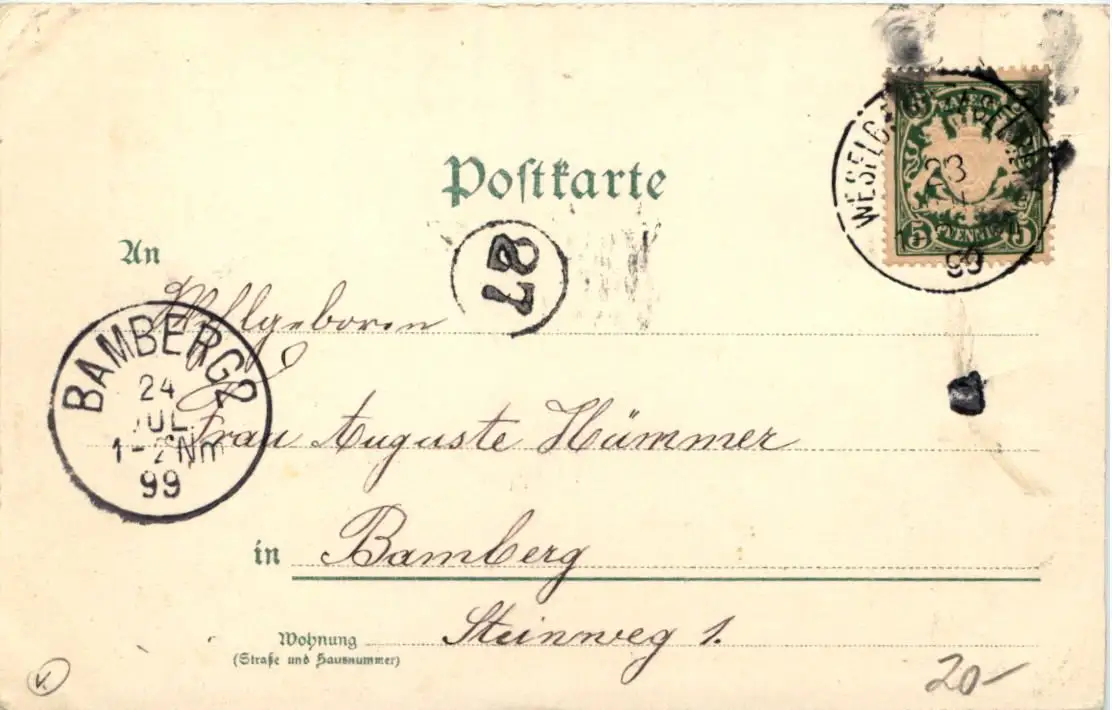 Postkarte
BAYERN
5 5
PFENNIG
23
99
An
87
Wohlgeboren
BAMBERG 2
24
JUL
1-2 Nm
99
Frau Auguste Hümmer
in Bamberg
Wohnung Steinweg 1.
(Straße und Hausnummer)
V.
20-